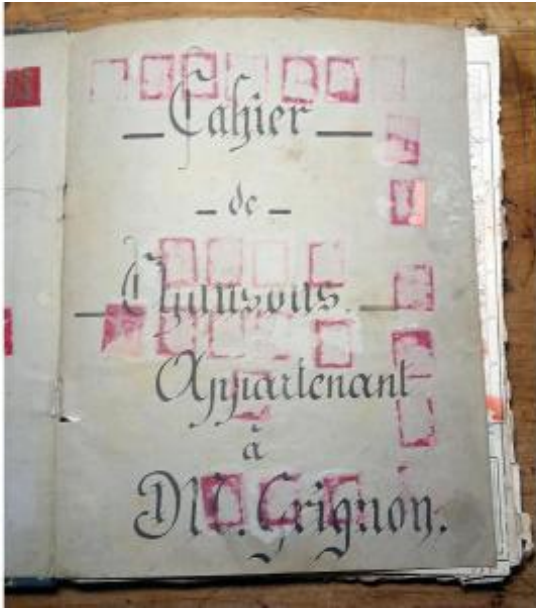 _ Cahier _
_ de _
_ Chansons. _
Appartenant
à
M. Grignon.